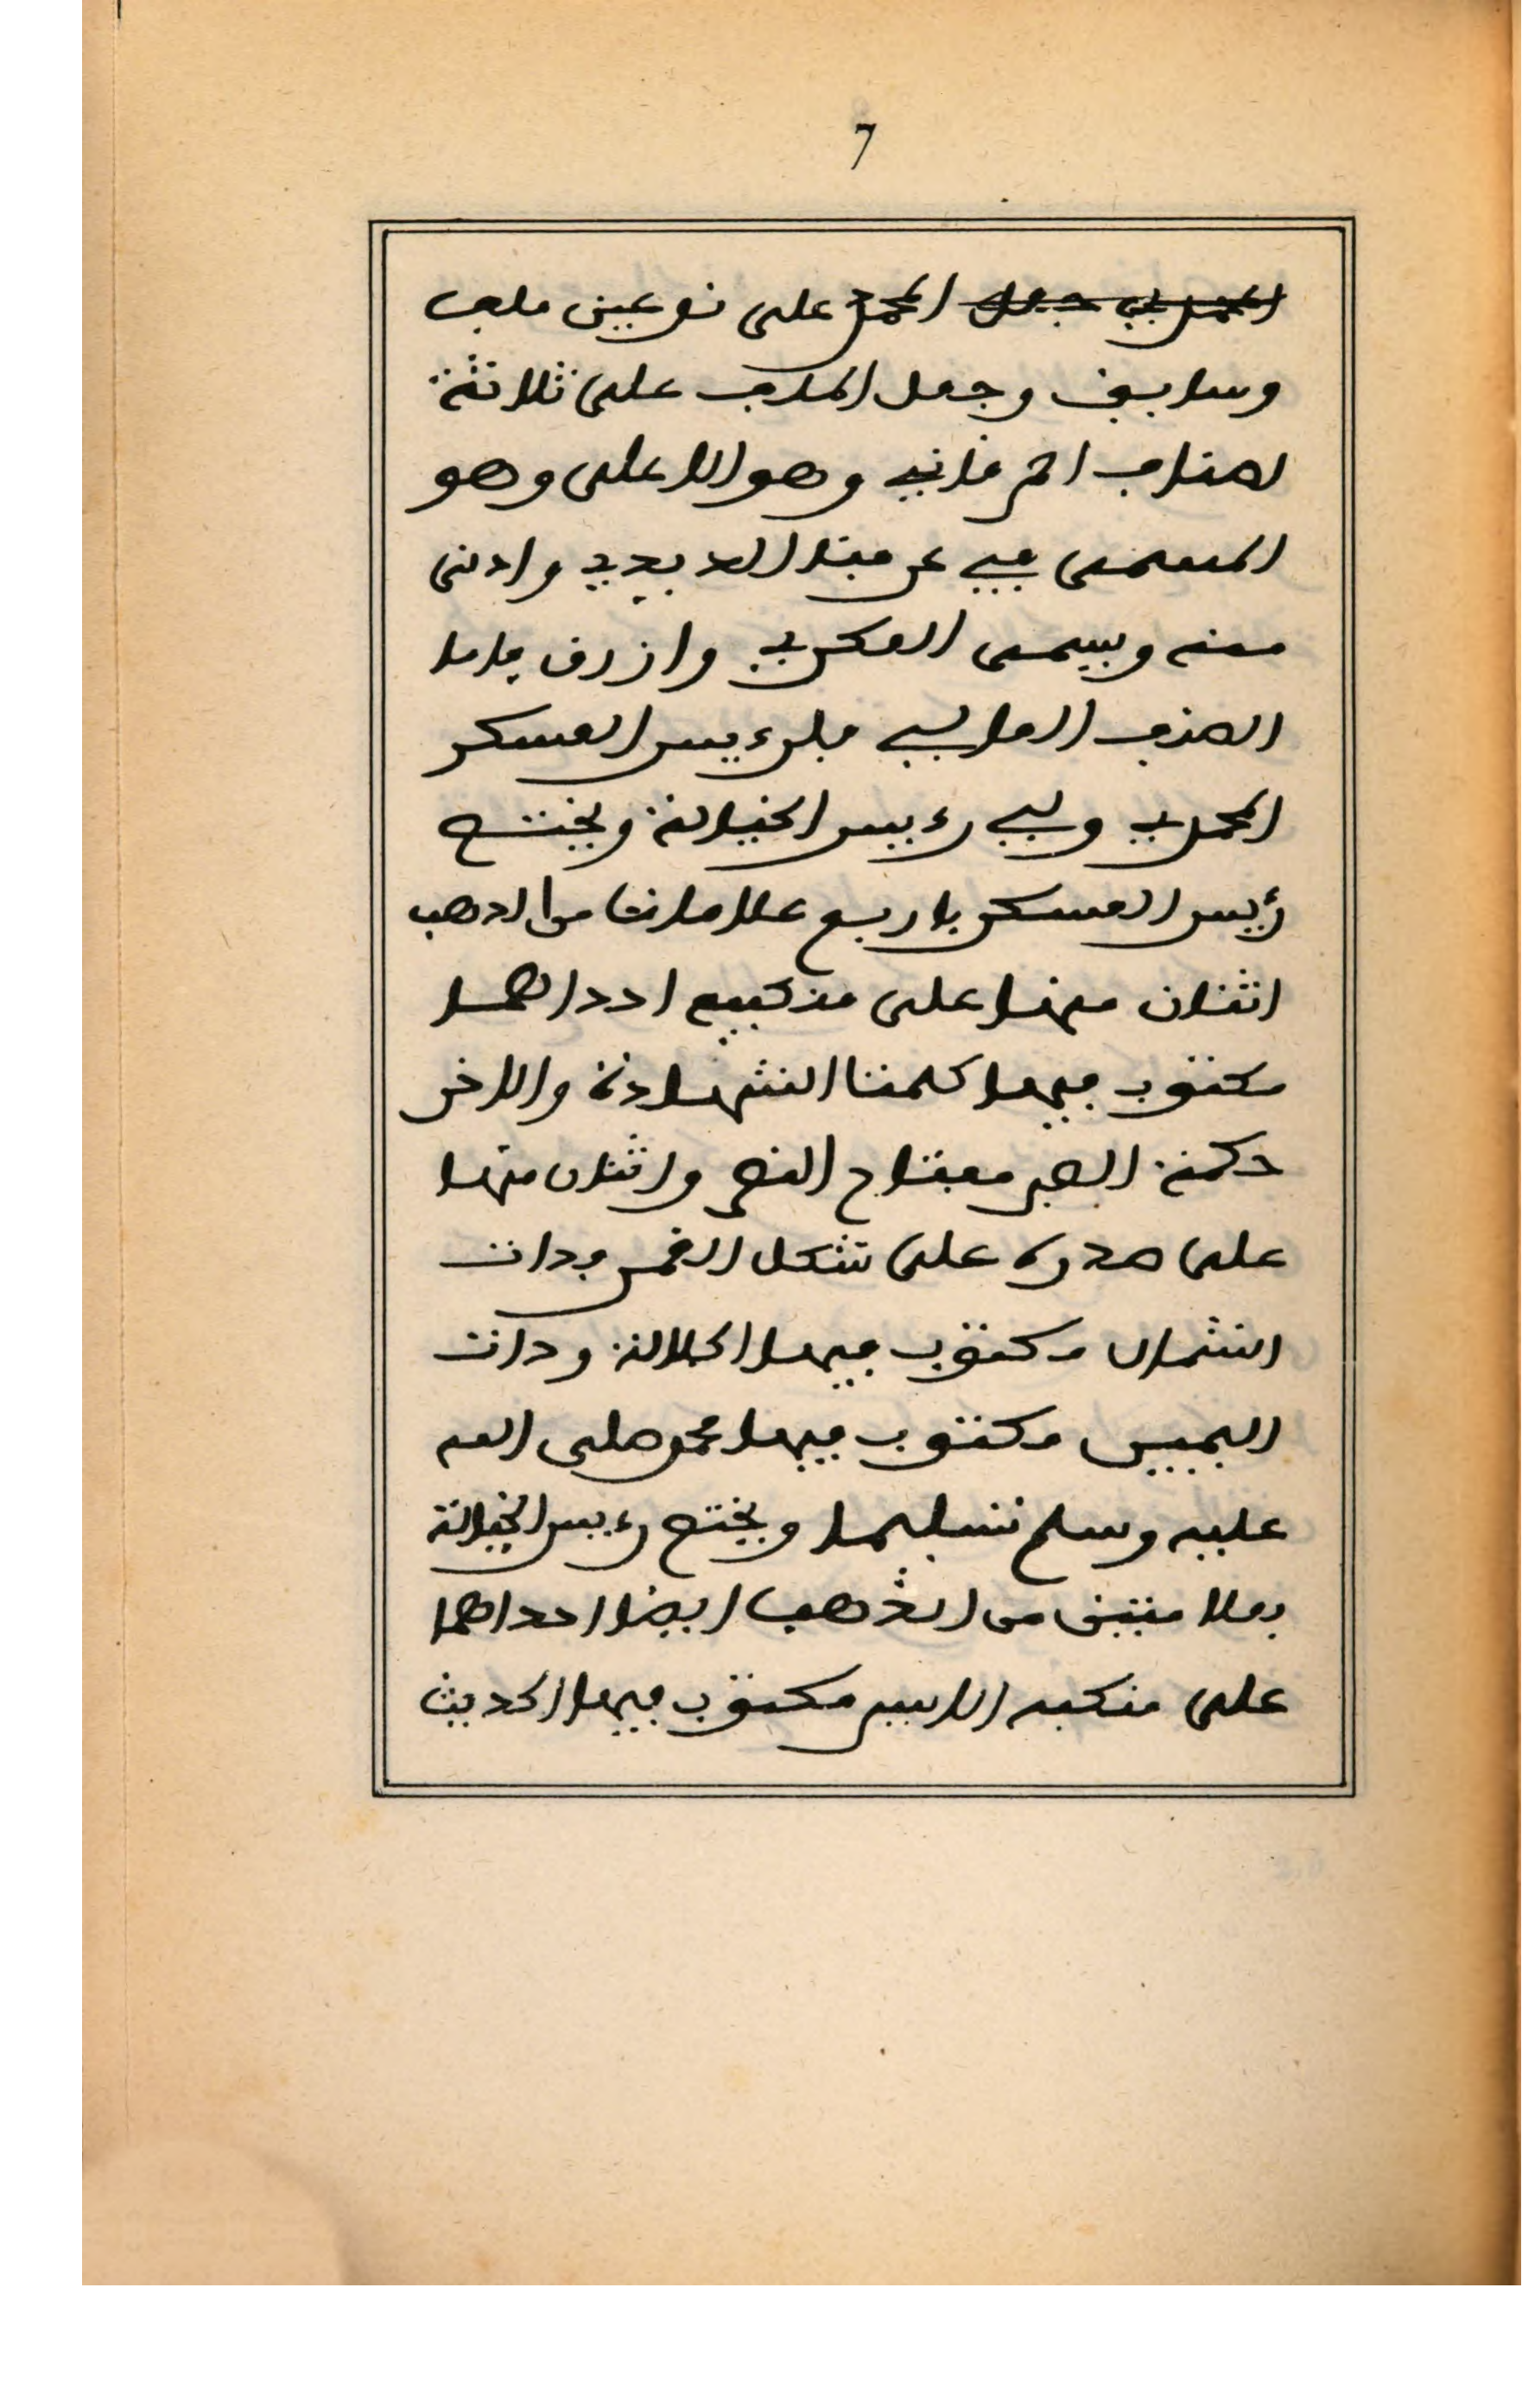 7
المحمدي جعل المحمد على نوعين ملف
وسابق وجعل الملف على ثلاثة
اصناف احمر قاني وهو الاعلى وهو
المسمى في عرفنا الابدي وادنى
منه ويسمى العكري وازرق فاما
الصنف العالي فلرءيس العسكر
المحمدي ولي رءيس الخيالة ويختص
رءيس العسكر باربع علامات من الذهب
اثنان منها على منكبيه احداهما
مكتوب فيها كلمتا الشهادة والاخر
حكمة الصبر مفتاح النصر واثنان منها
على صدره على شكل القمر فذات
الشمال مكتوب فيها الجلالة وذات
اليميين مكتوب فيها محمد صلى الله
عليه وسلم تسليما ويختص رءيس الخيالة
بعلامتين من الذهب ايضا احداهما
على منكبه الايسر مكتوب فيها الحديث